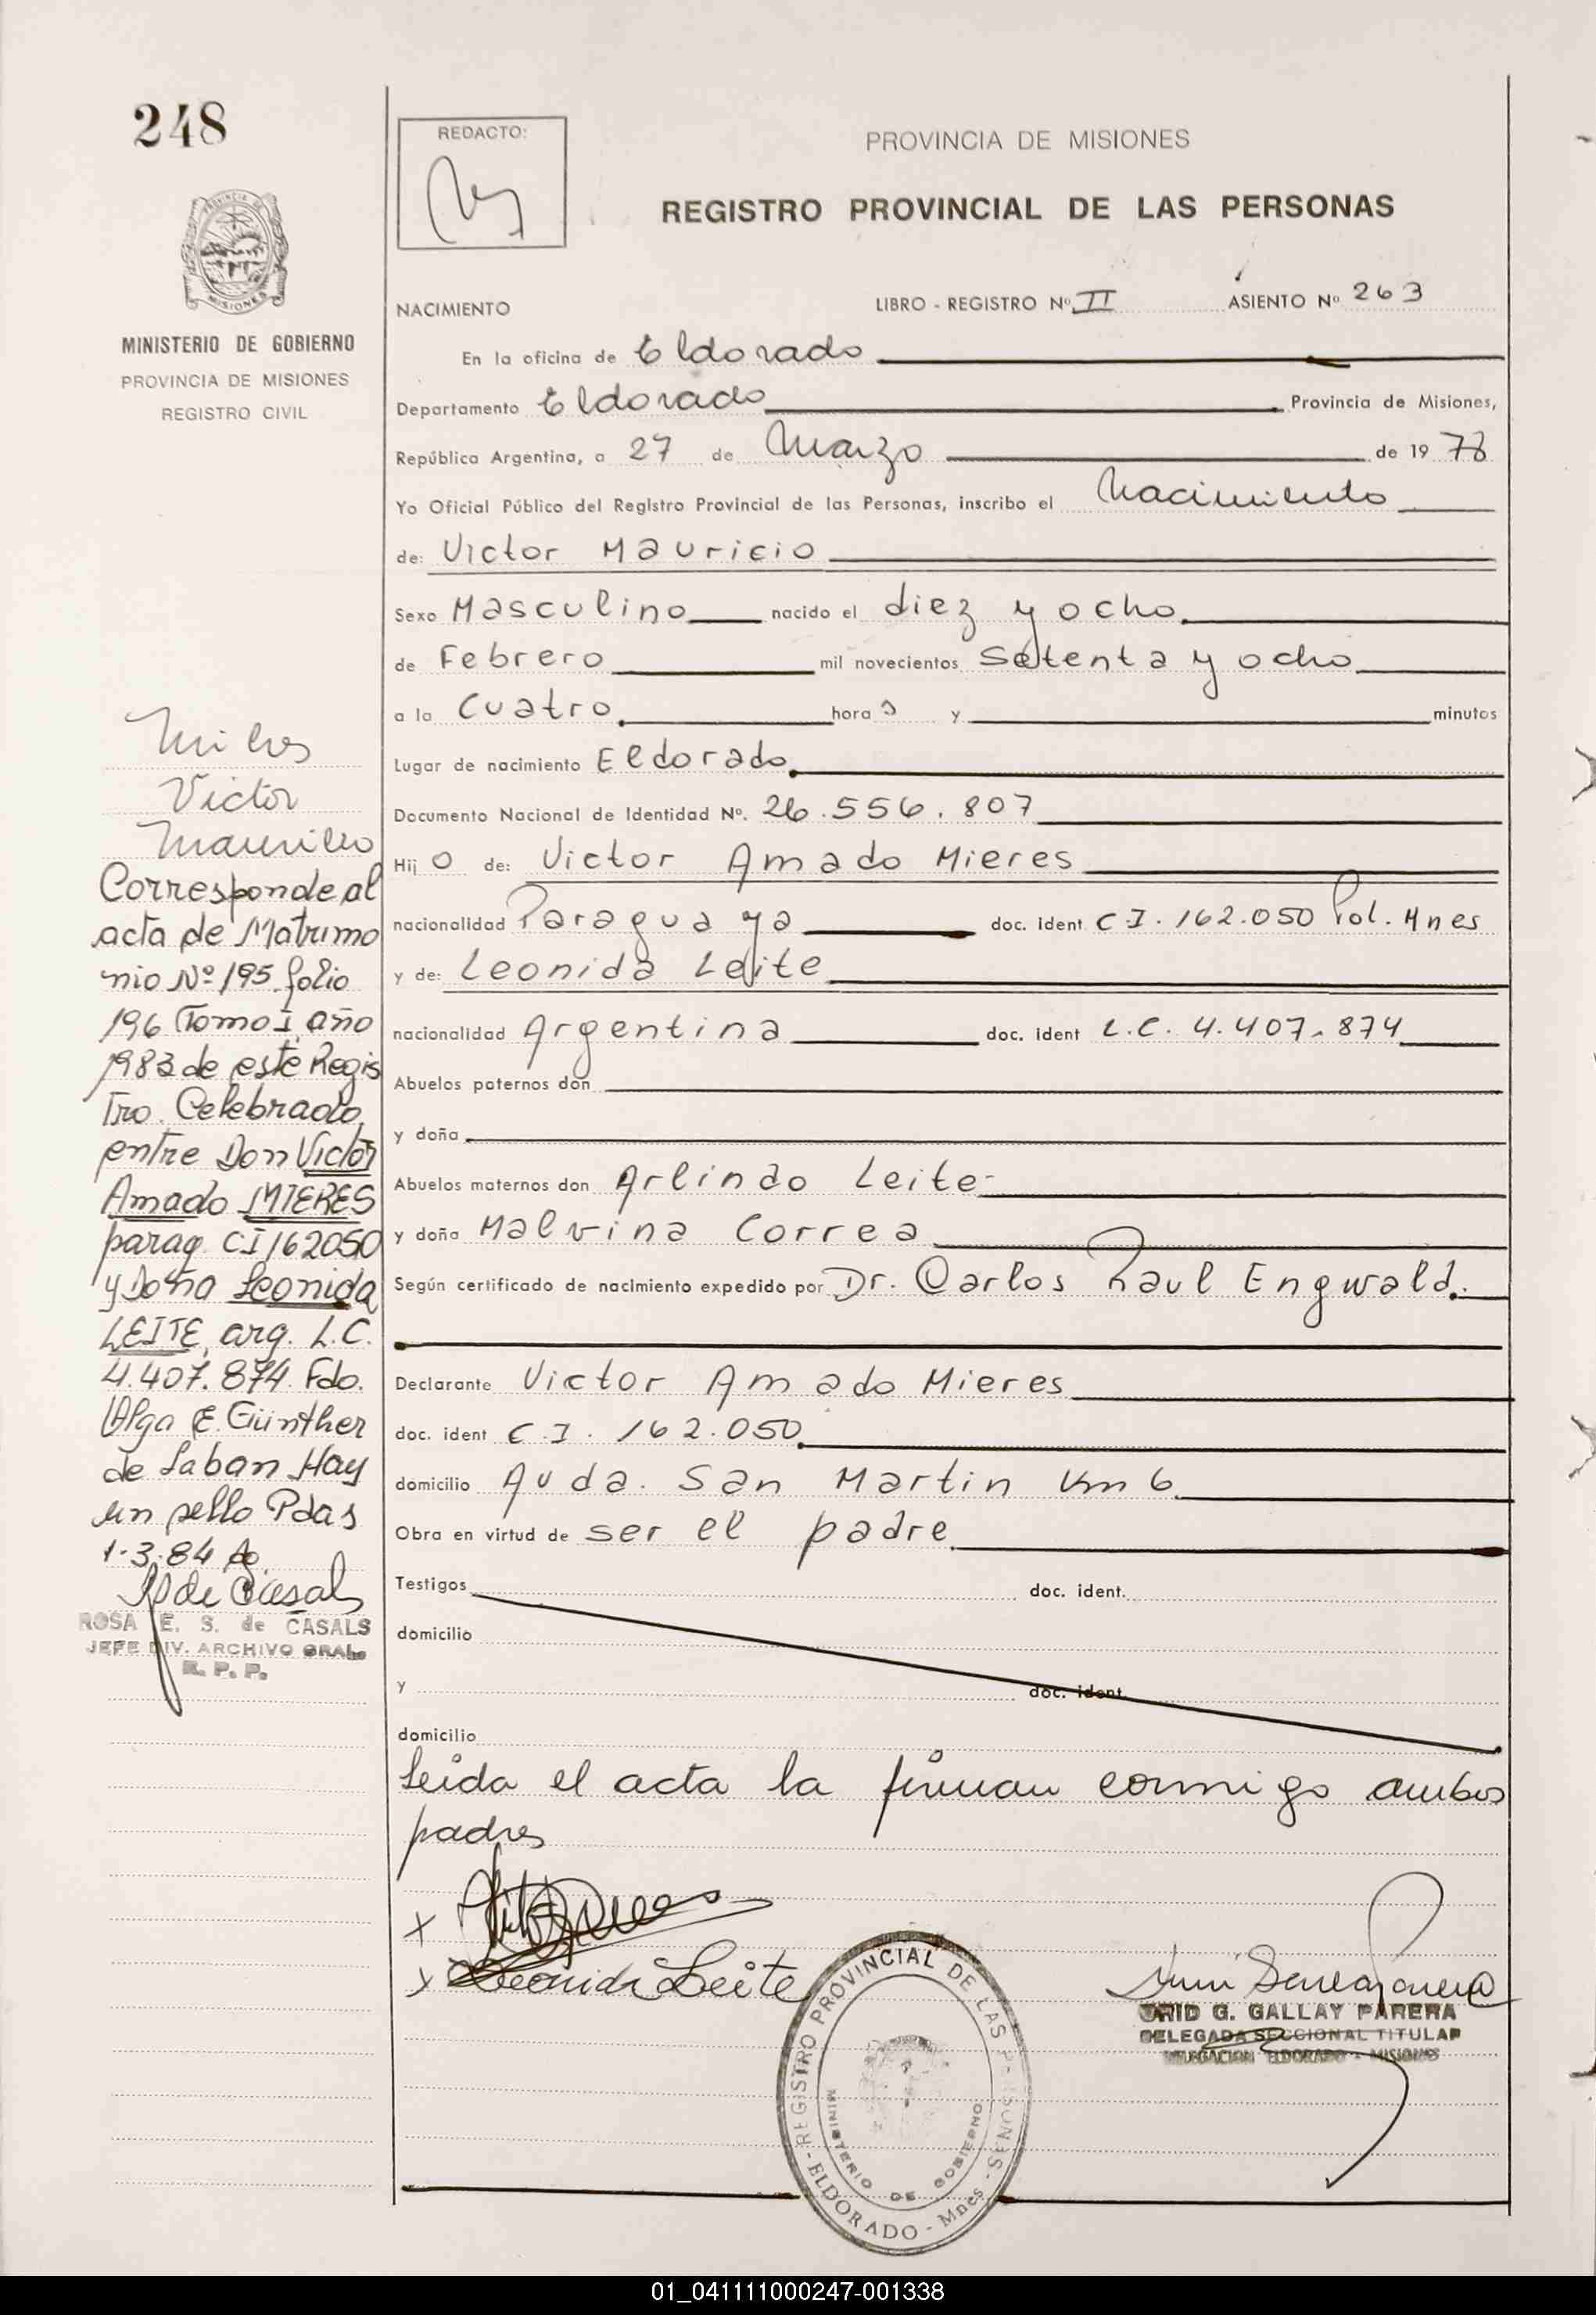 248
REDACTO:
PROVINCIA DE MISIONES
REGISTRO PROVINCIAL DE LAS PERSONAS
PROVINCIA DE
MISIONES
MINISTERIO DE GOBIERNO
PROVINCIA DE MISIONES
REGISTRO CIVIL
NACIMIENTO LIBRO - REGISTRO Nº II ASIENTO Nº 263
En la oficina de Eldorado
Departamento Eldorado Provincia de Misiones,
República Argentina, a 27 de Marzo de 1978
Yo Oficial Público del Registro Provincial de las Personas, inscribo el Nacimiento
de: Victor Mauricio
Sexo Masculino nacido el diez y ocho
de Febrero mil novecientos setenta y ocho
a la cuatro horas y minutos
Lugar de nacimiento Eldorado
Documento Nacional de Identidad Nº. 26.556.807
Hijo de: Victor Amado Mieres
nacionalidad Paraguaya doc. ident C.I. 162.050 Pol. Mnes
y de: Leonida Leite
nacionalidad Argentina doc. ident L.C. 4.407.874
Abuelos paternos don
y doña
Abuelos maternos don Arlindo Leite
y doña Malvina Correa
Según certificado de nacimiento expedido por Dr. Carlos Raul Engwald.
Declarante Victor Amado Mieres
doc. ident C.I. 162.050
domicilio Avda. San Martin Km 6
Obra en virtud de ser el padre
Testigos doc. ident.
domicilio
y doc. ident.
domicilio
Leida el acta la firman conmigo ambos
padres
Victor
Corresponde al
acta de Matrimo
nio Nº 195 folio
196 Tomo I año
1983 de este Regis
tro. Celebrado
entre Don Victor
Amado MIERES
parag. CI 162050
y Doña Leonida
LEITE, arg. L.C.
4.407.874. Fdo.
Olga E. Günther
de Laban Hay
un sello Pdas
1-3-84
R de Casals
ROSA E. S. de CASALS
JEFE DIV. ARCHIVO GRAL.
R. P. P.
x
x Leonida Leite
REGISTRO PROVINCIAL DE LAS PERSONAS
MINISTERIO DE GOBIERNO
ELDORADO - Mnes
G. GALLAY PARERA
DELEGADA SECCIONAL TITULAR
DELEGACION ELDORADO - MISIONES
01_041111000247-001338